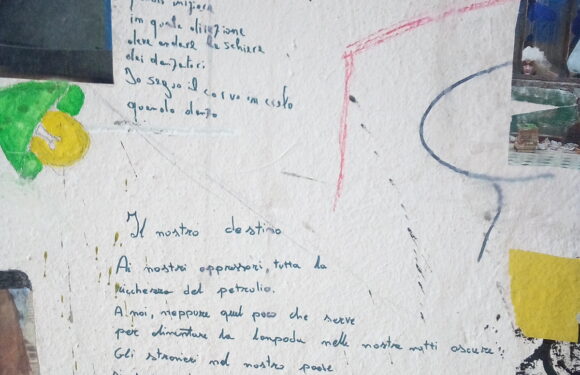 in quale direzione
deve andare la schiera
dei danzatori.
Io seguo il corvo in cielo
quando danzo
Il nostro destino
Ai nostri oppressori, tutta la
ricchezza del petrolio.
A noi, neppure quel poco che serve
per alimentare la lampada nelle nostre notti oscure.
Gli stranieri nel nostro paese